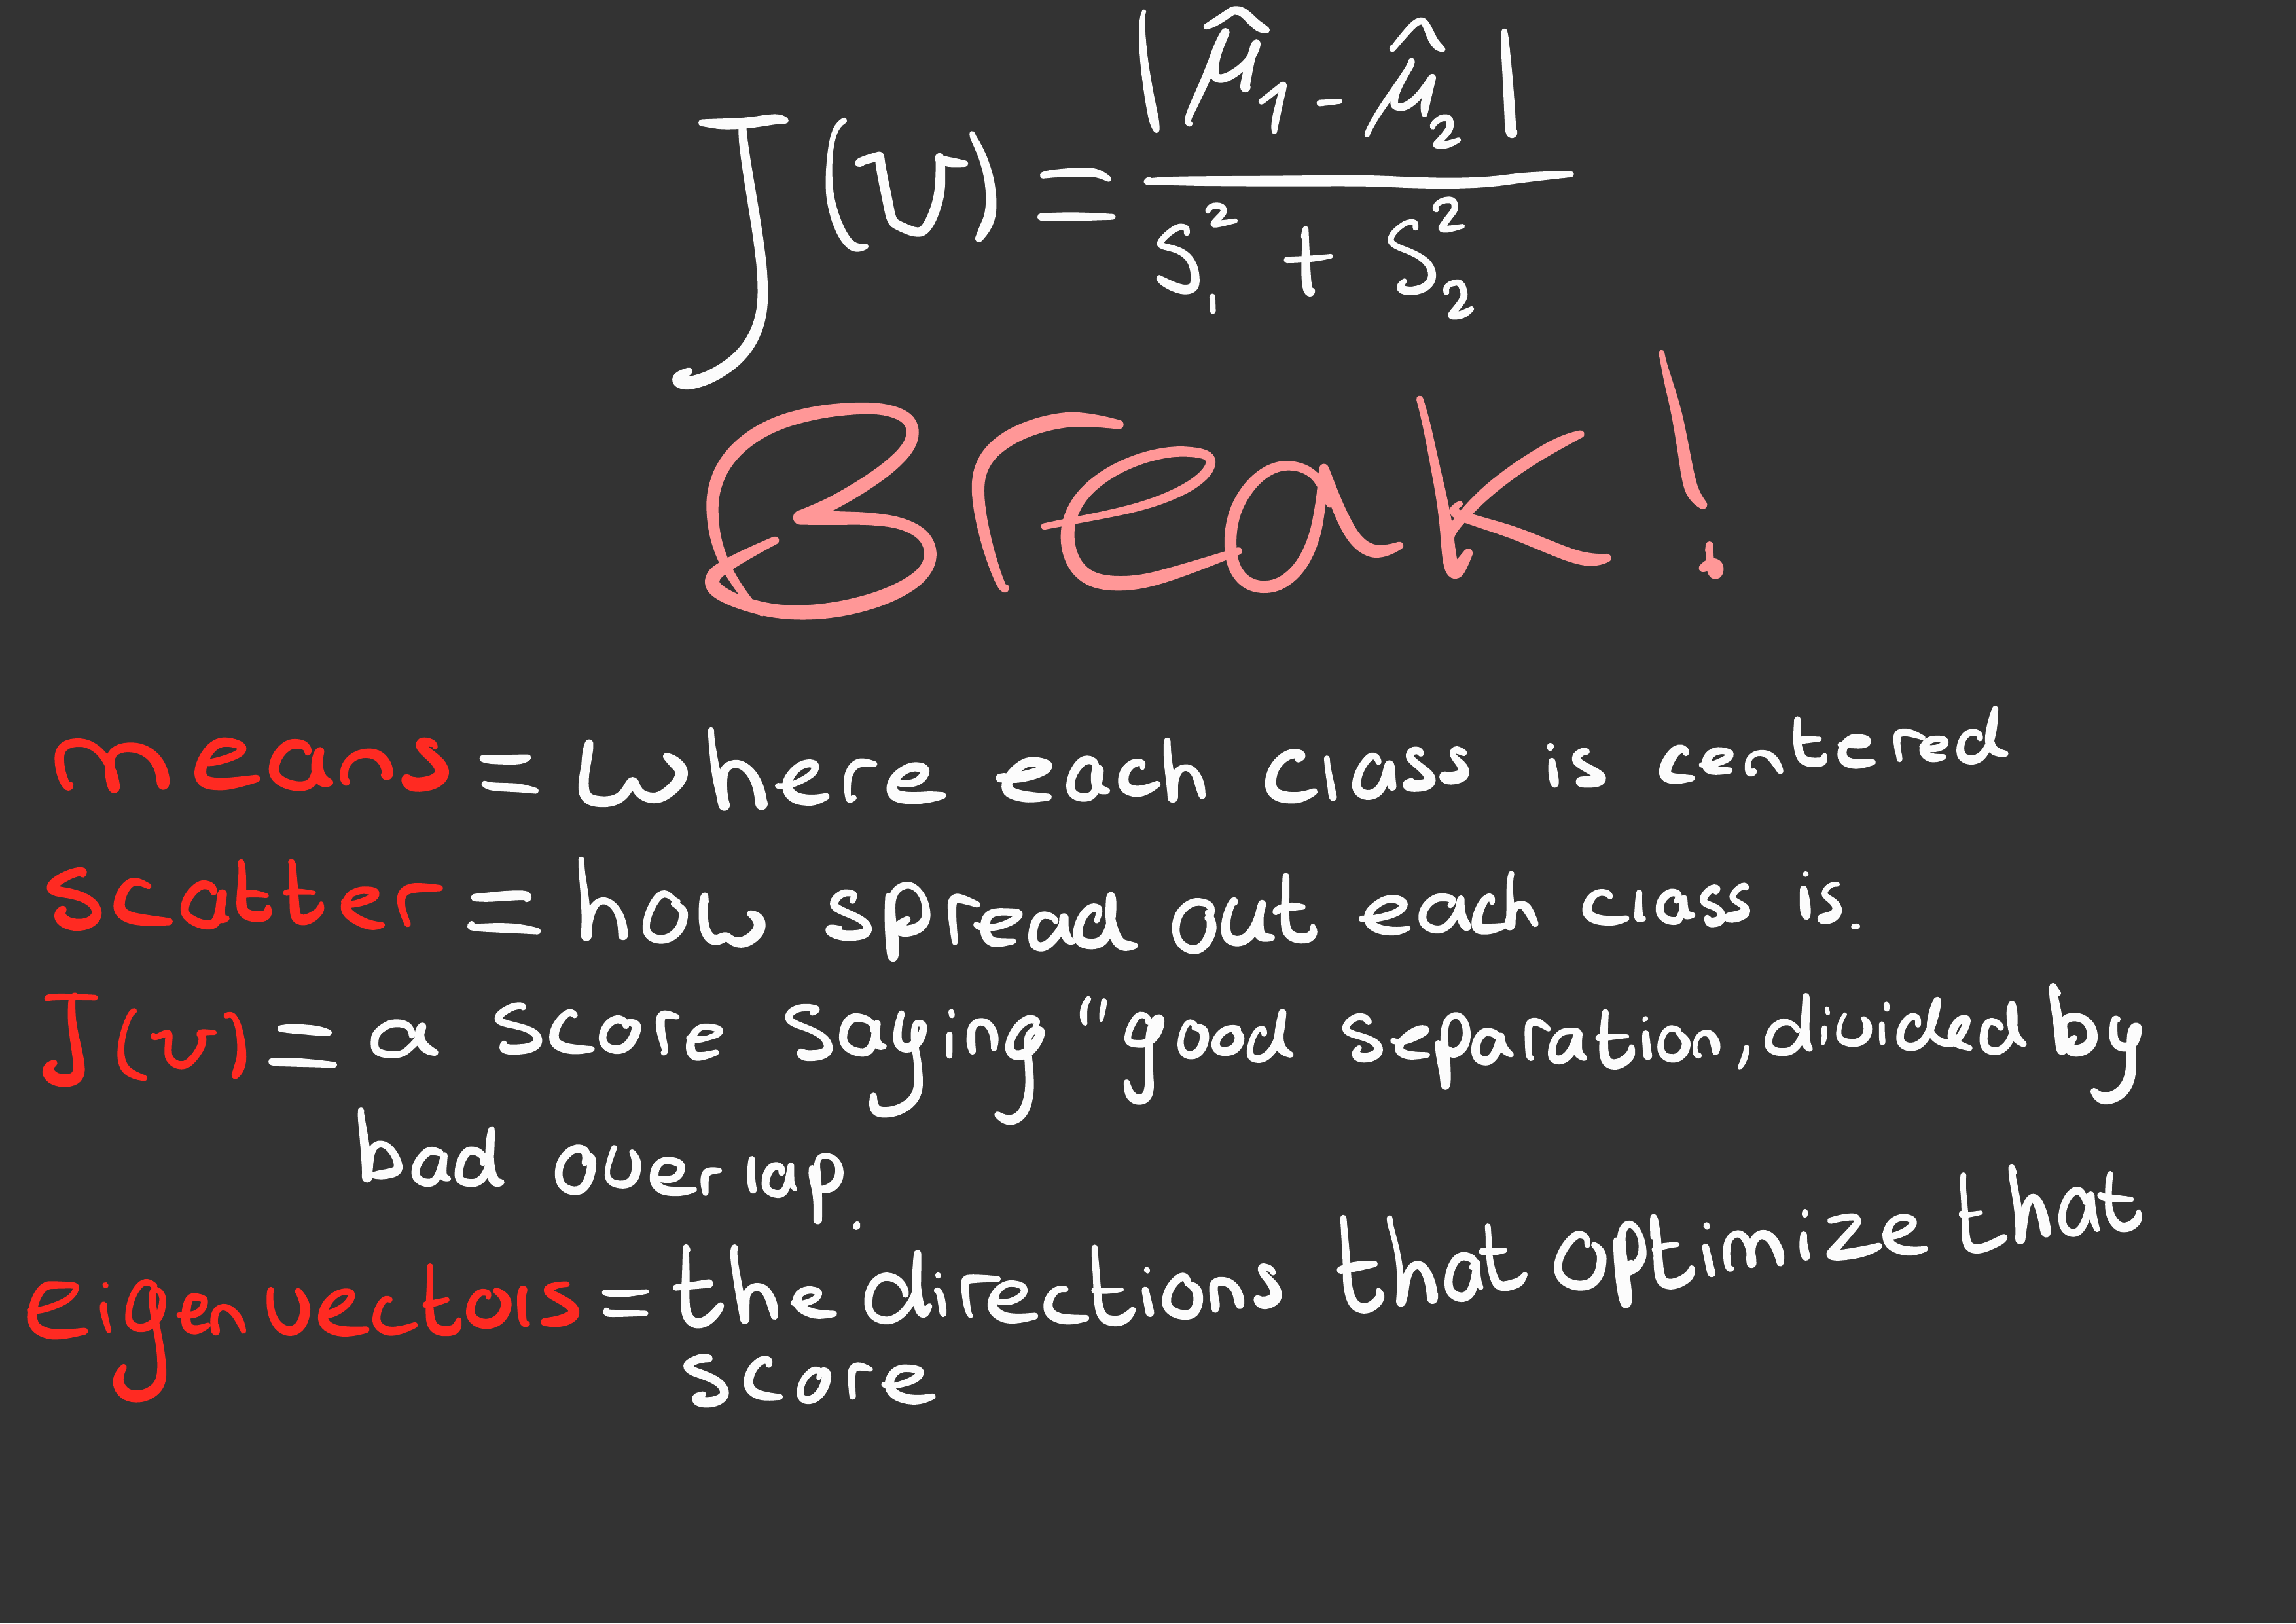 J(v) = |μ̂₁ - μ̂₂| / s₁² + s₂²
Break!
means = where each class is centered
scatter = how spread out each class is.
J(v) = a score saying "good separation, divided by
bad overlap.
eigenvectors = the directions that optimize that
score